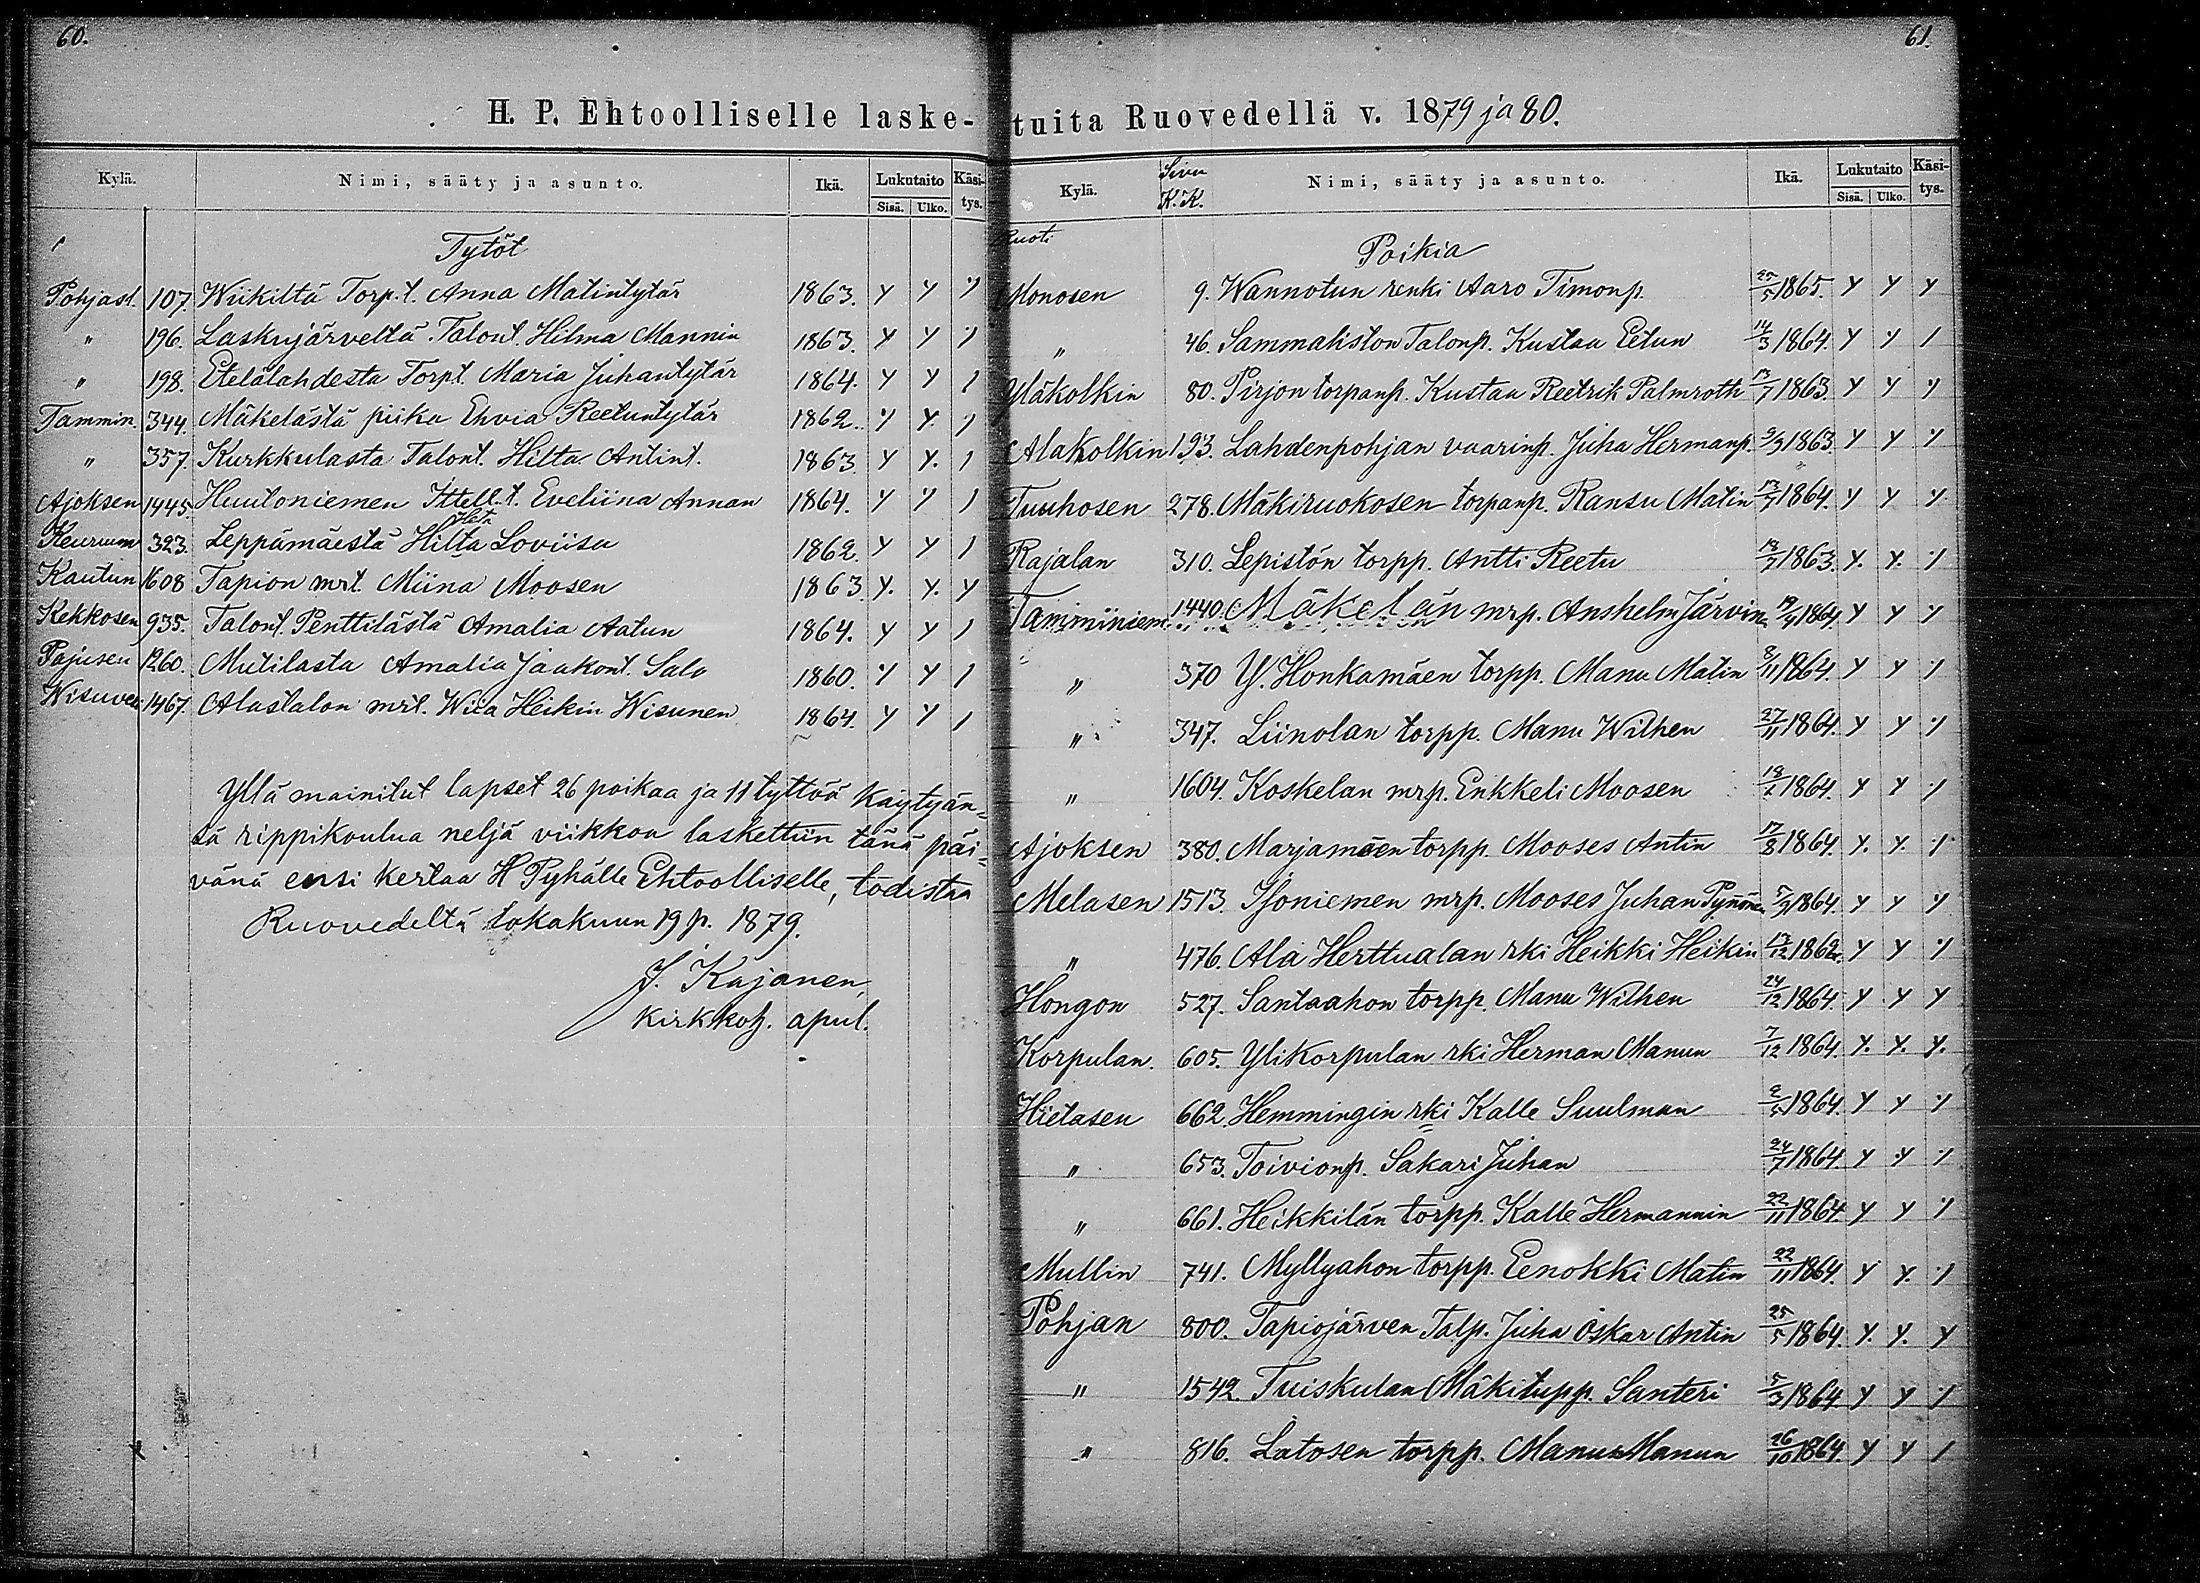 60.
H. P. Ehtoolliselle laske-
Kylä. Nimi, sääty ja asunto. Ikä. Lukutaito Käsi-
Sisä. Ulko. tys.
Tytöt
Pohjasl. 107. Wiikiltä Torp.t. Anna Matintytär 1863. y y y
" 196. Laskujärveltä Talont. Hilma Mannin 1863. y y /
" 198. Etelälahdesta Torpt. Maria Juhantytär 1864. y y /
Tammin. 344. Mäkelästä piika Ehvia Reetuntytär 1862. y y. y
" 357. Kurkkulasta Talont. Hilta Antint. 1863 y y. /
Ajoksen 1445. Huutoniemen Ittell.t. Eveliina Annan 1864. y y /
Keuruum 323. Leppämäestä Hilta Loviisa 1862. y y /
Kautun 1608 Tapion mrt. Miina Moosen 1863 y. y. y
Kekkosen 935. Talont. Penttilästä Amalia Aatun 1864. y y /
Pajusen 1260. Mutilasta Amalia Jaakont. Salo 1860. y y /
Wisuve. 1467. Alastalon mrt. Wiia Heikin Wisunen 1864 y y /
Yllä mainitut lapset 26 poikaa ja 11 tyttöä käytyän-
sä rippikoulua neljä viikkoa laskettiin tänä päi-
vänä ensi kertaa H Pyhälle Ehtoolliselle, todistaa
Ruovedeltä lokakuun 19 p. 1879.
J. Kajanen,
kirkkoh. apul.
61.
tuita Ruovedellä v. 1879 ja 80.
Kylä. Sivu K.K. Nimi, sääty ja asunto. Ikä. Lukutaito Käsi-
Sisä. Ulko. tys.
Ruoti Poikia
Monosen 9. Wannotun renki Aaro Timonp. 25/5 1865. y y y
" 46. Sammaliston Talonp. Kustaa Eetun 14/3 1864. y y /
Yläkolkin 80. Pirjon torpanp. Kustaa Reetrik Palmroth 13/7 1863. y y y
Alakolkin 193. Lahdenpohjan vaarinp. Juha Hermanp. 9/9 1863 y y y
Tuuhosen 278. Mäkiruokosen torpanp. Ransu Matin 13/7 1864. y y y
Rajalan 310. Lepistön torpp. Antti Reetu 13/7 1863. y. y. y
Tamminiem. 1440. Mäkelän mrp. Anshelm Järvin. 19/9 1864 y y y
" 370 Y. Honkamäen torpp. Manu Matin 8/11 1864. y y y
" 347. Liinolan torpp. Manu Wilhen 27/11 1864. y y y
" 1604. Koskelan mrp. Enkkeli Moosen 1864. y y y
Ajoksen 380. Marjamäen torpp. Mooses Antin 17/8 1864. y. y. y
Melasen 1513. Isoniemen mrp. Mooses Juhan Pynnönen 5/9 1864. y y y
" 476. Ala Herttualan rki Heikki Heikin 13/12 1862. y y y
Hongon 527. Santaahon torpp. Manu Wilhen 24/12 1864. y y y
Korpulan. 605. Ylikorpulan rki Herman Manun 7/12 1864. y. y. y.
Hietasen 662. Hemmingin rki Kalle Suulman 2/5 1864. y y y
" 653. Toivionp. Sakari Juhan 24/7 1864. y y y
" 661. Heikkilän torpp. Kalle Hermannin 22/11 1864 y y y
Mullin 741. Myllyahon torpp. Eenokki Matin 22/11 1864. y y. y
Pohjan 800. Tapiojärven Talp. Juha Oskar Antin 25/5 1864. y. y. y
" 1542. Tuiskulan Mäkitupp. Santeri 5/3 1864. y y y
" 816. Latosen torpp. Manu Manun 26/10 1864. y y /